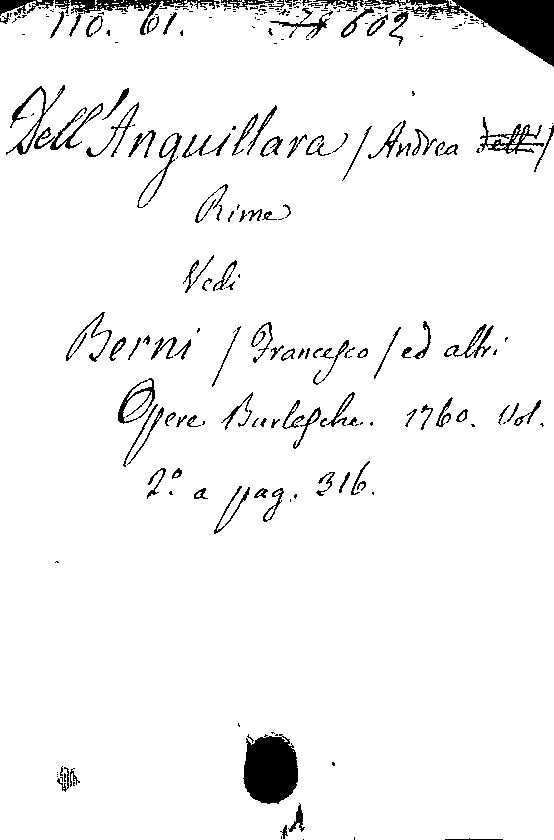 110. 61. 78 602
Dell'Anguillara / Andrea dell' /
Rime
Vedi
Berni / Francesco / ed altri
Opere Burlesche. 1760. Vol.
2.º a pag. 316.